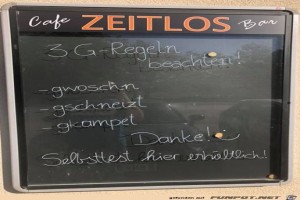 Cafe ZEITLOS Bar
3 G-Regeln
beachten!
- gwoschn
- gschneizt
- gkampet
Danke!
Selbsttest hier erhältlich!
gefunden auf FUNPOT.NET